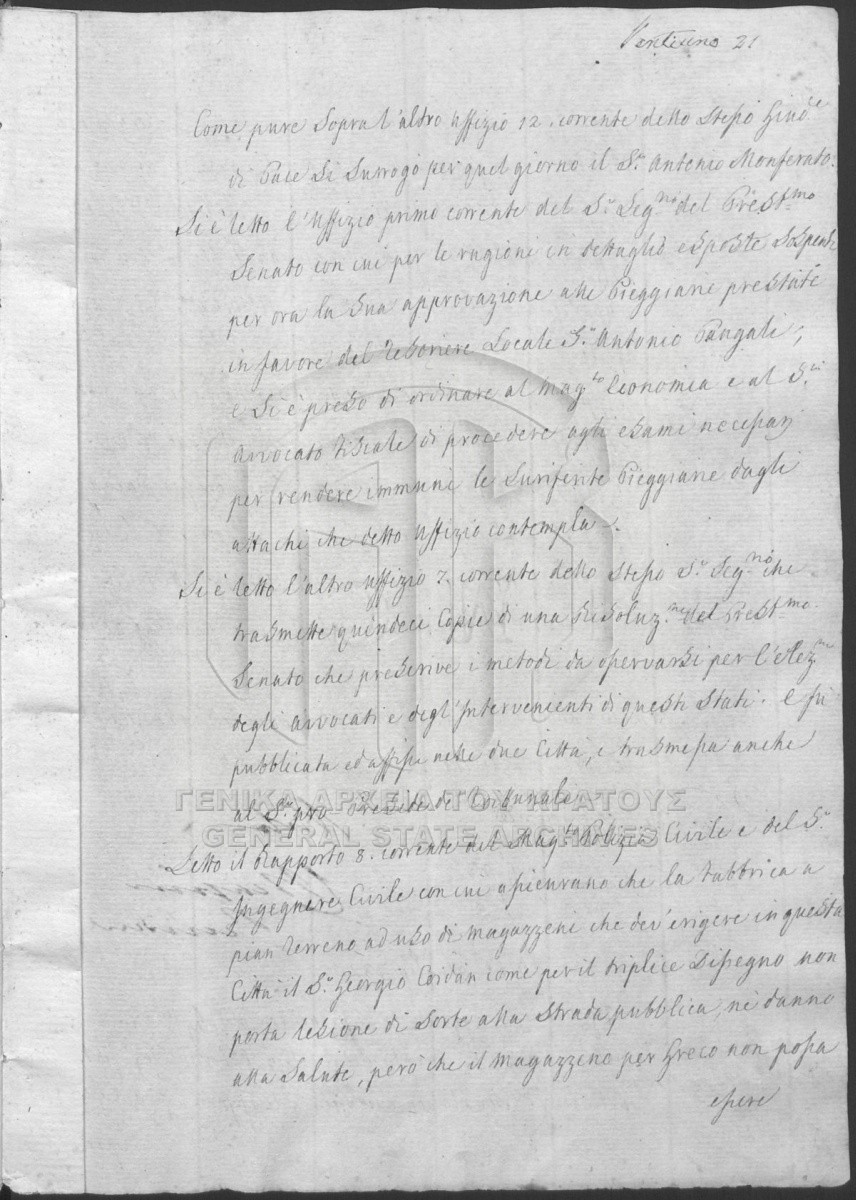 Ventiuno 21
Come pure Sopra l'altro Uffizio 12. corrente dello Stesso Giud.e
di Pace Si Surrogò per quel giorno il S.r Antonio Monferato.
Si è letto l'Uffizio primo corrente del S.r Seg.rio del Prest.mo
Senato con cui per le ragioni in dettaglio esposte Sospende
per ora la Sua approvazione alle Pieggiarie prestate
in favore del Tesoriere Locale S.r Antonio Pangali;
e Si è preso di ordinare al Mag.to Economia e al S.r
Avvocato Fiscale di procedere agli esami necessarj
per rendere immuni le Surriferite Pieggiarie dagli
attachi che detto Uffizio contempla.
Si è letto l'altro Uffizio 7. corrente dello Stesso S.r Seg.rio che
trasmette quindeci Copie di una Risoluz.ne del Prest.mo
Senato che prescrive i metodi da osservarsi per l'Elez.ne
degli Avvocati e degl'Intervenienti di questi Stati. E fù
pubblicata ed affissa nelle due Città, e trasmessa anche
al S.r pro Preside di Tribunale
ΓΕΝΙΚΑ ΑΡΧΕΙΑ ΤΟΥ ΚΡΑΤΟΥΣ
GENERAL STATE ARCHIVES
Letto il Rapporto 8. corrente del Mag.to Polizia Civile e del S.r
Ingegnere Civile con cui assicurano che la Fabbrica a
pian terreno ad uso di Magazzeni che dev'erigere in questa
Città il S.r Giorgio come per il triplice Dissegno non
porta lesione di Sorte alla Strada pubblica, nè danno
alla Salute, però che il Magazzeno per Greco non possa
essere